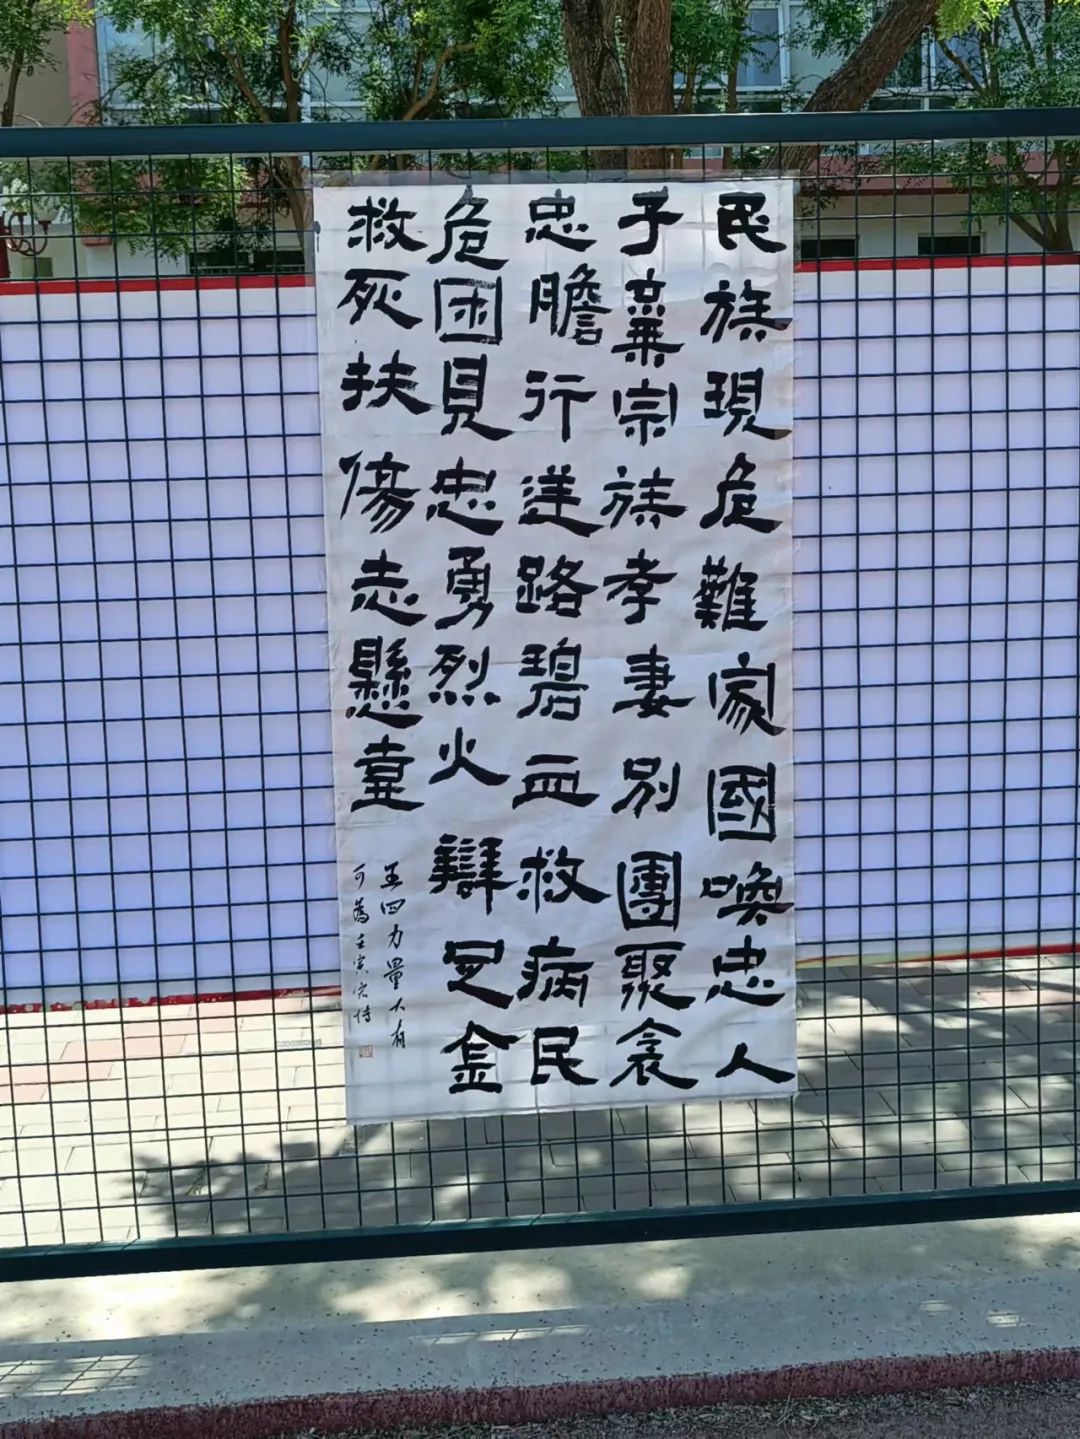 民族現危難家國喚忠人
子棄宗族孝妻別團聚衾
忠膽行逆路碧血救病民
危困見忠勇烈火辯足金
救死扶傷志懸壺
四力量大有
可為壬寅